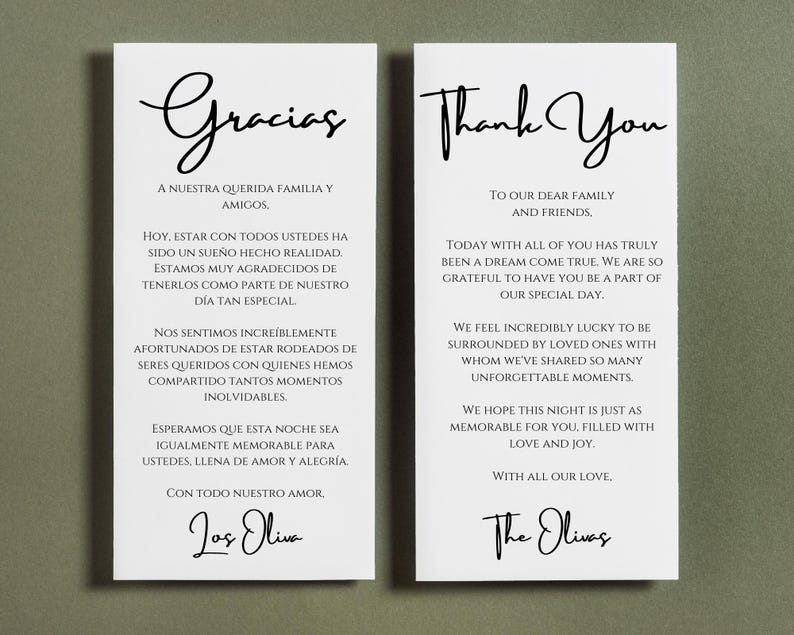 Gracias
A nuestra querida familia y
amigos,
Hoy, estar con todos ustedes ha
sido un sueño hecho realidad.
Estamos muy agradecidos de
tenerlos como parte de nuestro
día tan especial.
Nos sentimos increíblemente
afortunados de estar rodeados de
seres queridos con quienes hemos
compartido tantos momentos
inolvidables.
Esperamos que esta noche sea
igualmente memorable para
ustedes, llena de amor y alegría.
Con todo nuestro amor,
Los Oliva
Thank You
To our dear family
and friends,
Today with all of you has truly
been a dream come true. We are so
grateful to have you be a part of
our special day.
We feel incredibly lucky to be
surrounded by loved ones with
whom we've shared so many
unforgettable moments.
We hope this night is just as
memorable for you, filled with
love and joy.
With all our love,
The Olivas